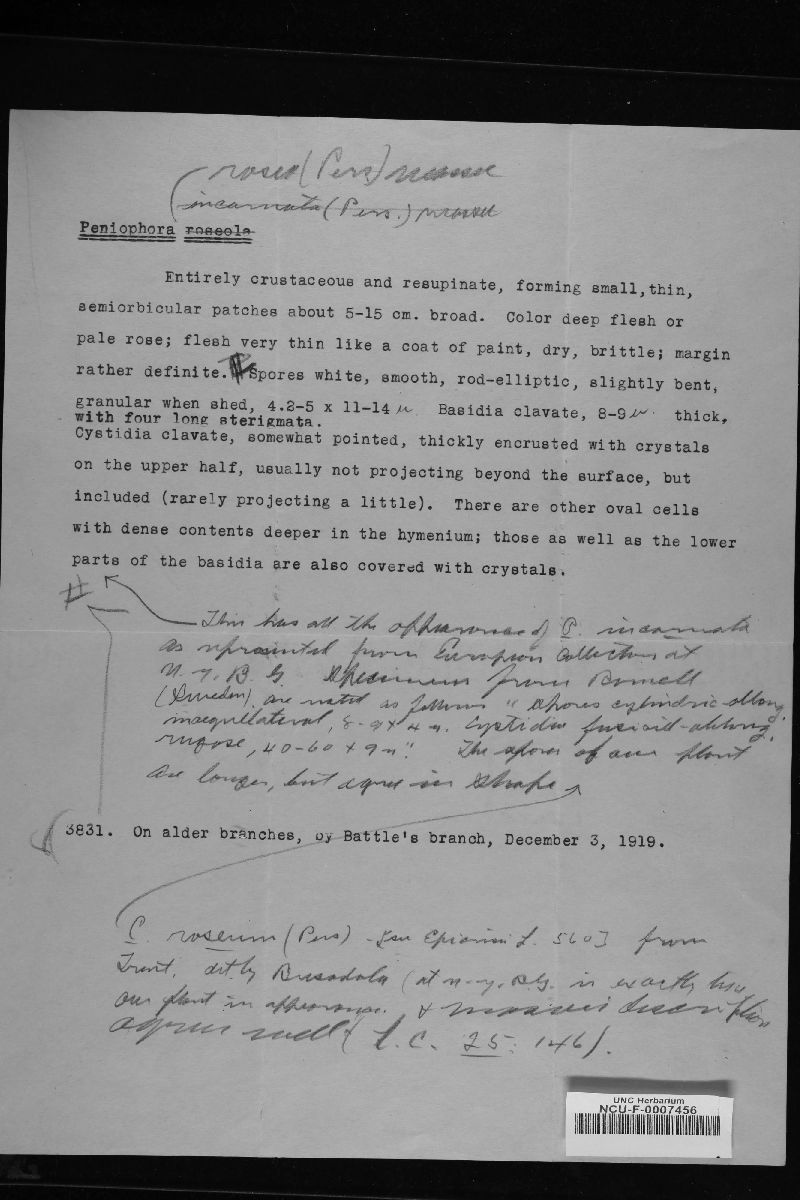 rosea (Pers) Massee
incarnata (Pers.) Massee
Peniophora roseola
Entirely crustaceous and resupinate, forming small, thin,
semiorbicular patches about 5-15 cm. broad. Color deep flesh or
pale rose; flesh very thin like a coat of paint, dry, brittle; margin
rather definite. # Spores white, smooth, rod-elliptic, slightly bent,
granular when shed, 4.2-5 x 11-14 µ. Basidia clavate, 8-9 µ. thick,
with four long sterigmata.
Cystidia clavate, somewhat pointed, thickly encrusted with crystals
on the upper half, usually not projecting beyond the surface, but
included (rarely projecting a little). There are other oval cells
with dense contents deeper in the hymenium; those as well as the lower
parts of the basidia are also covered with crystals.
# This has all the appearance of P. incarnata
as represented from European collections at
N. Y. B. G. Specimens from Romell
(Sweden) are noted as follows "Spores cylindric-oblong,
inaequilateral, 8-9 x 4 µ. Cystidia fusioid-oblong,
rugose, 40-60 x 9 µ". The spores of our plant
are longer, but agree in shape
3831. On alder branches, by Battle's branch, December 3, 1919.
C. roseum (Pers) 560] from
Trent, det. by Bresadola (at N.Y.B.G. is exactly like
our plant in appearance. & Massee's description
agrees well (l.c. 25: 146).
UNC Herbarium
NCU-F-0007456